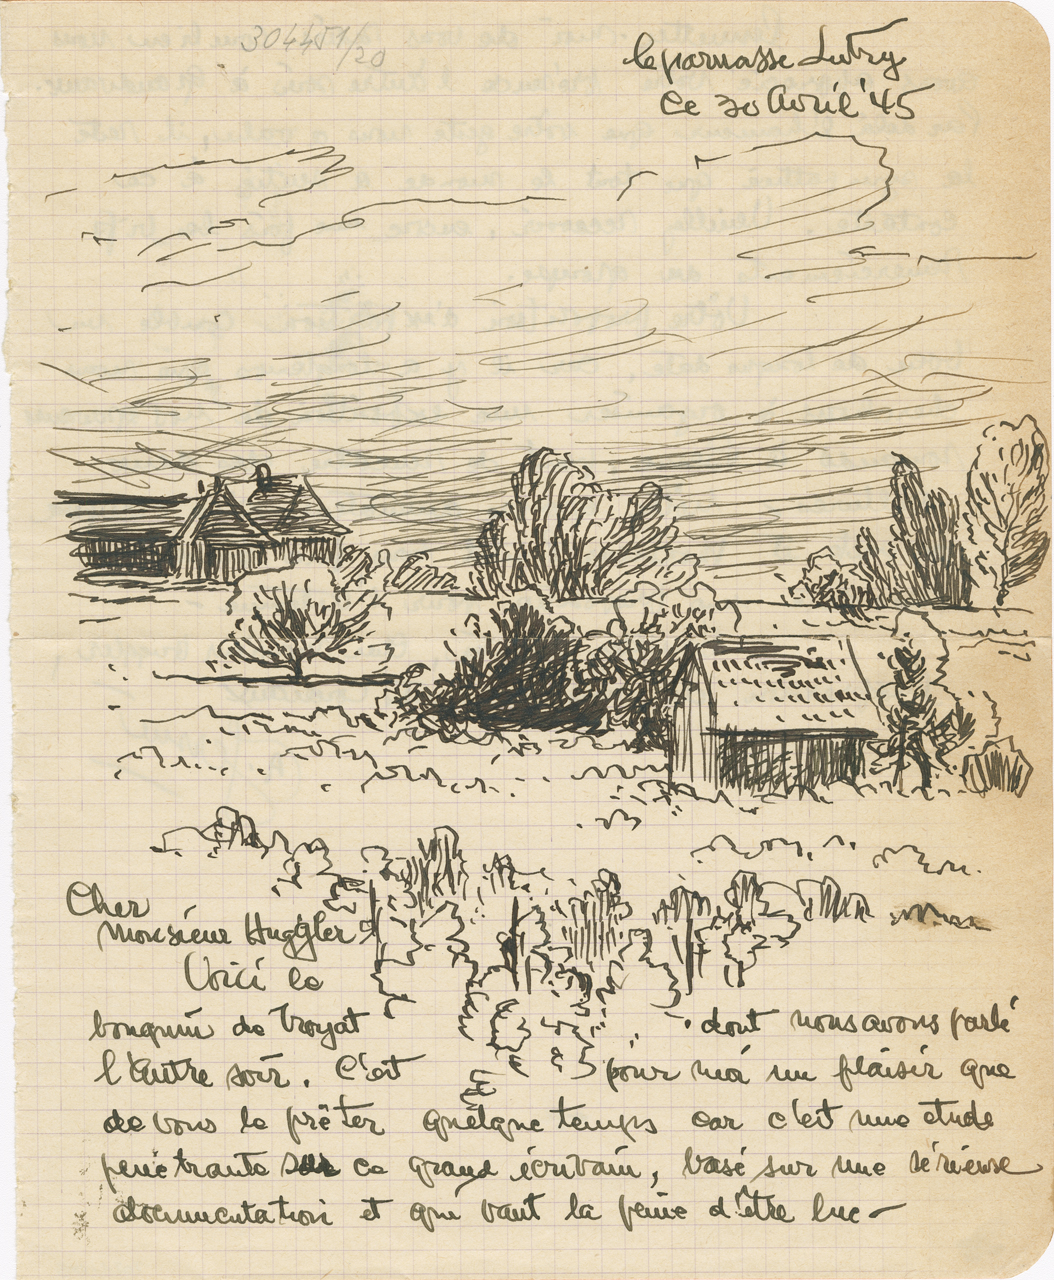 304451/20
le parnasse Lutry
Ce 30 Avril '45
Cher
Monsieur Huggler
Voici le
bouquin de Troyat dont nous avons parlé
l'autre soir. C'est pour moi un plaisir que
de vous le prêter quelque temps car c'est une étude
pénétrante sur ce grand écrivain, basé sur une sérieuse
documentation et que vaut la peine d'être lue -